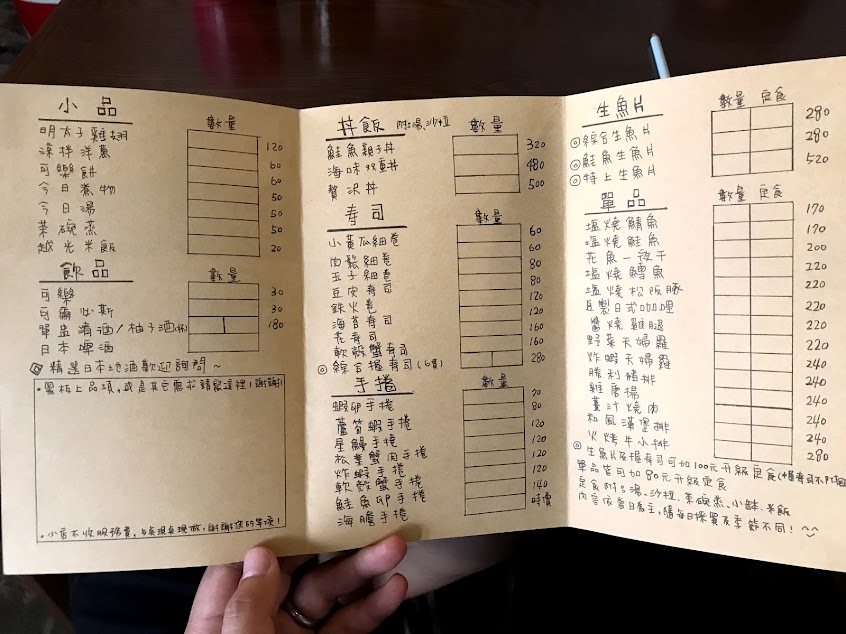 小品
數量
明太子雞翅 120
涼拌洋蔥 60
可樂餅 60
今日煮物 50
今日湯 50
茶碗蒸 50
越光米飯 20
飲品
數量
可樂 30
可爾必斯 30
單盅清酒/柚子酒(杯) 180
日本啤酒
◎精選日本地酒歡迎詢問~
•黑板上品項,或是其它需求請寫這裡!謝謝!
•小店不收服務費,
丼飯 附:湯、沙拉
數量
鮭魚親子丼 320
海味双重丼 480
贅沢丼 500
寿司
數量
小黃瓜細卷 60
肉鬆細卷 60
玉子細卷 80
豆皮寿司 80
鉄火卷 120
海苔寿司 120
花寿司 120
軟殼蟹寿司 160
◎綜合握寿司(6貫) 280
手捲
數量
蝦卵手捲 70
蘆筍蝦手捲 80
星鰻手捲 120
松葉蟹肉手捲 120
炸蝦手捲 120
軟殼蟹手捲 120
鮭魚卵手捲 140
海膽手捲 時價
生魚片
數量 定食
◎綜合生魚片 280
◎鮭魚生魚片 280
◎特上生魚片 520
單品
數量 定食
塩燒鯖魚 170
塩燒鮭魚 170
花魚一夜干 200
塩燒鱈魚 220
塩燒松阪豚 220
自製日式咖哩 220
醬燒雞腿 220
野菜天婦羅 220
炸蝦天婦羅 220
勝利豬排 240
雞唐揚 240
薑汁燒肉 240
和風漢堡排 240
火烤牛小排 280
◎生魚片及握寿司可加100元升級定食
單品皆可加80元升級定食
定食附:湯、沙拉、茶碗蒸、小缽、米飯
內容依當日為主,隨每日採買及季節不同!